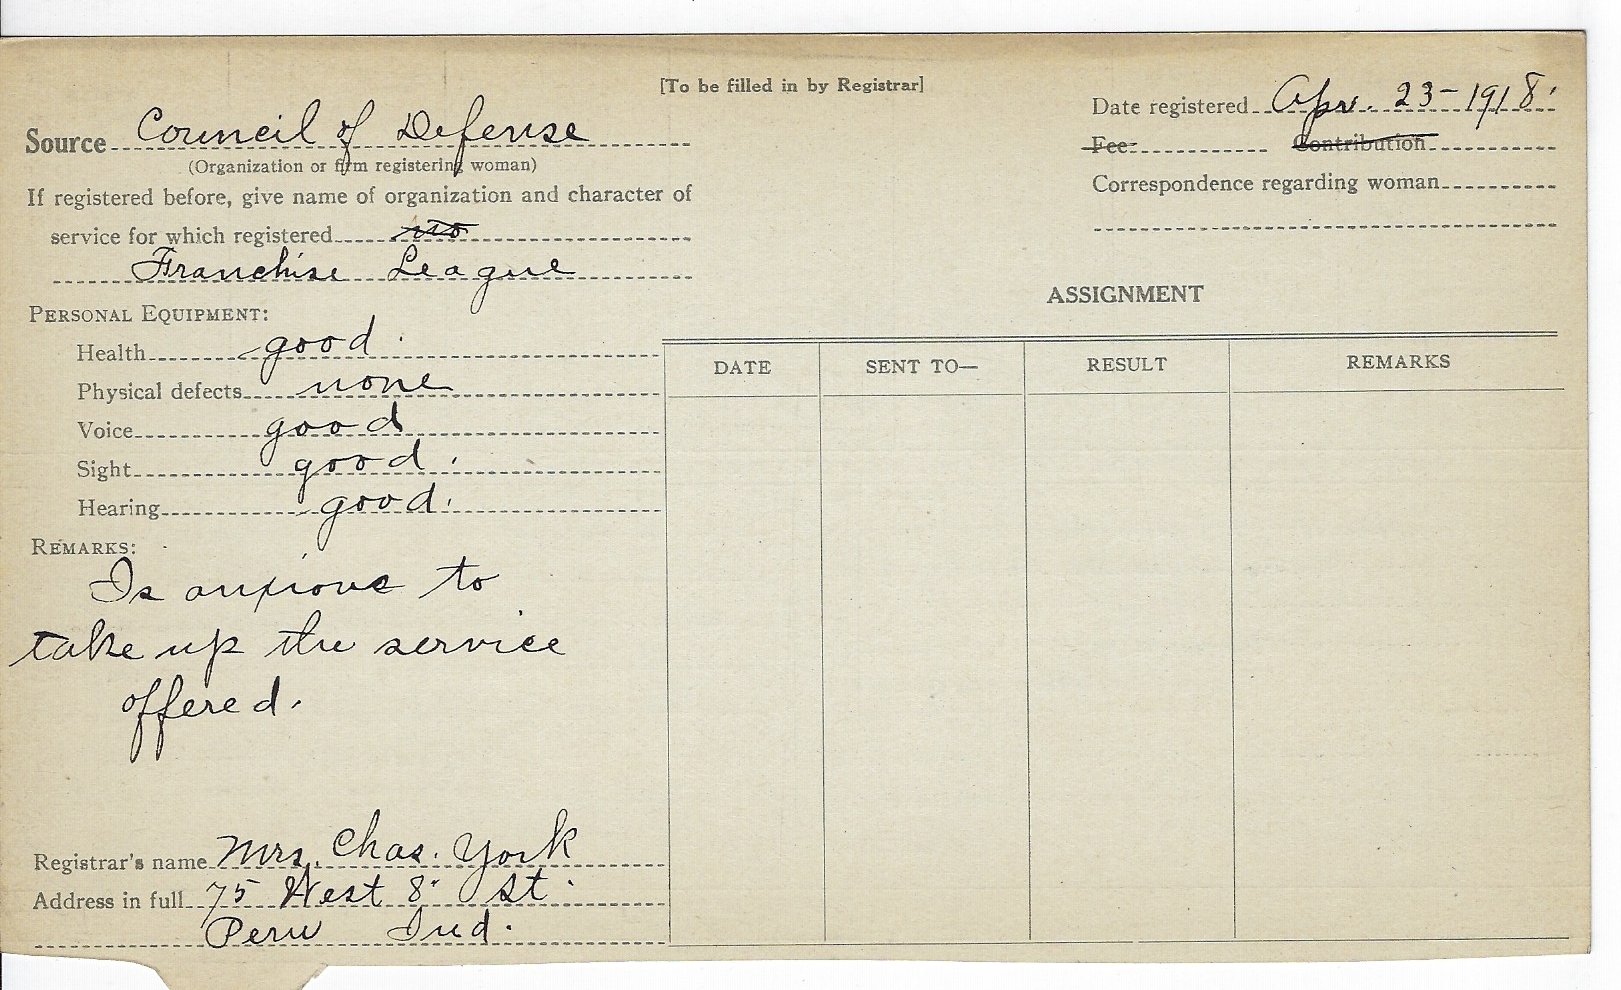 [To be filled in by Registrar]
Source Council of Defense
(Organization or firm registering woman)
If registered before, give name of organization and character of
service for which registered no
Franchise League
PERSONAL EQUIPMENT:
Health good.
Physical defects none
Voice good
Sight good.
Hearing good.
REMARKS:
Is anxious to
take up the service
offered.
Registrar's name Mrs. Chas. York
Address in full 75 West 8" St.
Peru Ind.
Date registered Apr. 23-1918.
Fee Contribution
Correspondence regarding woman
ASSIGNMENT
DATE SENT TO— RESULT REMARKS